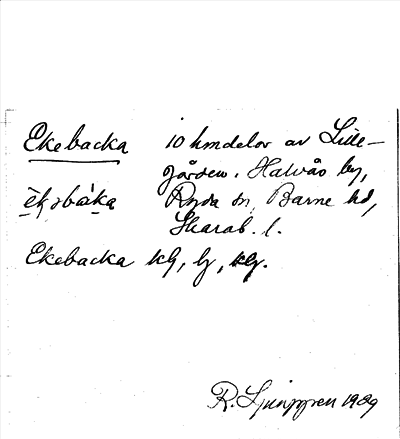 Ekebacka 10 kmdelar av Lille-
gården. Halvås by,
è̱kəbàka Ryda sn, Barne hd,
Skarab. l.
Ekebacka kg, lg, kg.
R. Ljunggren 1929